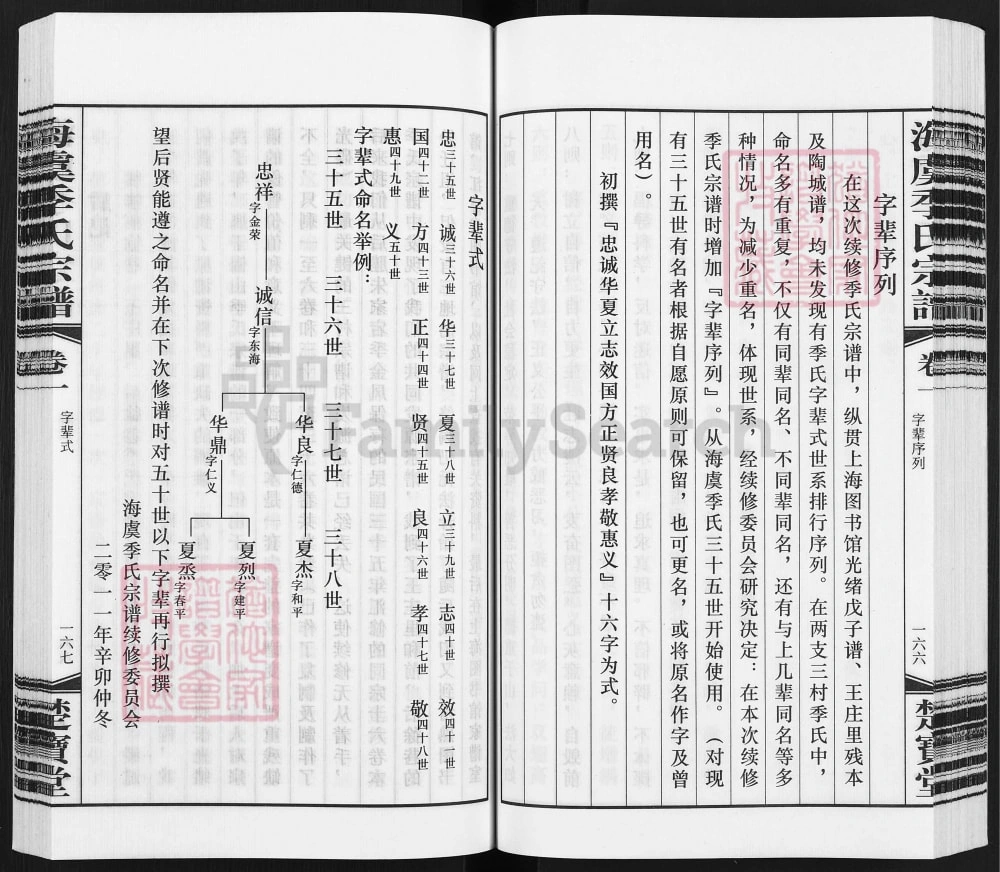 海虞季氏宗譜
卷一
字辈序列
一六六
楚寶堂
字辈序列
在这次续修季氏宗谱中，纵贯上海图书馆光绪戊子谱、王庄里残本
及陶城谱，均未发现有季氏字辈式世系排行序列。在两支三村季氏中，
命名多有重复，不仅有同辈同名、不同辈同名，还有与上几辈同名等多
种情况，为减少重名，体现世系，经续修委员会研究决定：在本次续修
季氏宗谱时增加『字辈序列』。从海虞季氏三十五世开始使用。对现
有三十五世有名者根据自愿原则可保留，也可更名，或将原名作字及曾
用名）。
初撰『忠诚华夏立志效国方正贤良孝敬惠义』十六字为式。
字辈式
忠三十五世 诚三十六世 华三十七世 夏三十八世 立三十九世 志四十世 效四十一世
国四十二世 方四十三世 正四十四世 贤四十五世 良四十六世 孝四十七世 敬四十八世
惠四十九世 义五十世
字辈式命名举例
三十五世 三十六世 三十七世 三十八世
忠祥字金荣 诚信字东海 华良字仁德 夏杰字和平
夏烈字建平
华鼎字仁义 夏烝字春平
望后贤能遵之命名并在下次修谱时对五十世以下字辈再行拟撰
海虞季氏宗谱续修委员会
二零一一年辛卯仲冬
海虞季氏宗譜
卷一
字辈式
一六七
楚寶堂
FamilySearch